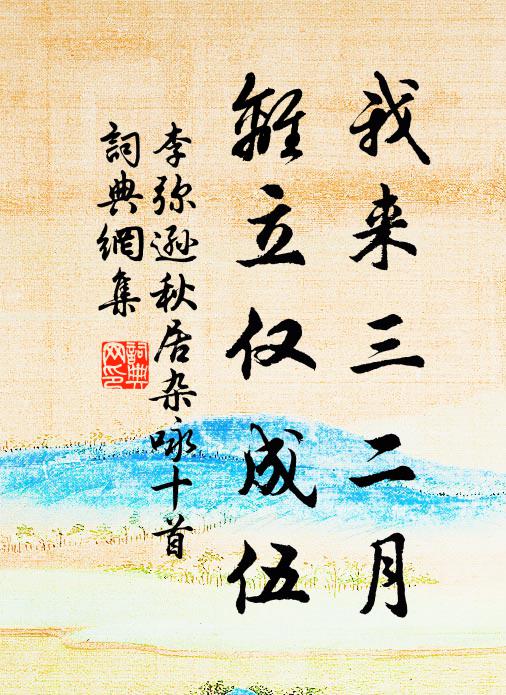 我来三二月
離立仅成伍
李弥遜秋居杂咏十首
詞典網集
詞典
网印